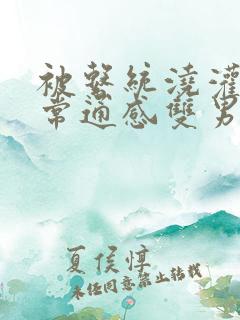 被繫統澆灌
常通感雙男
夏侯惇
未经同意禁止转载